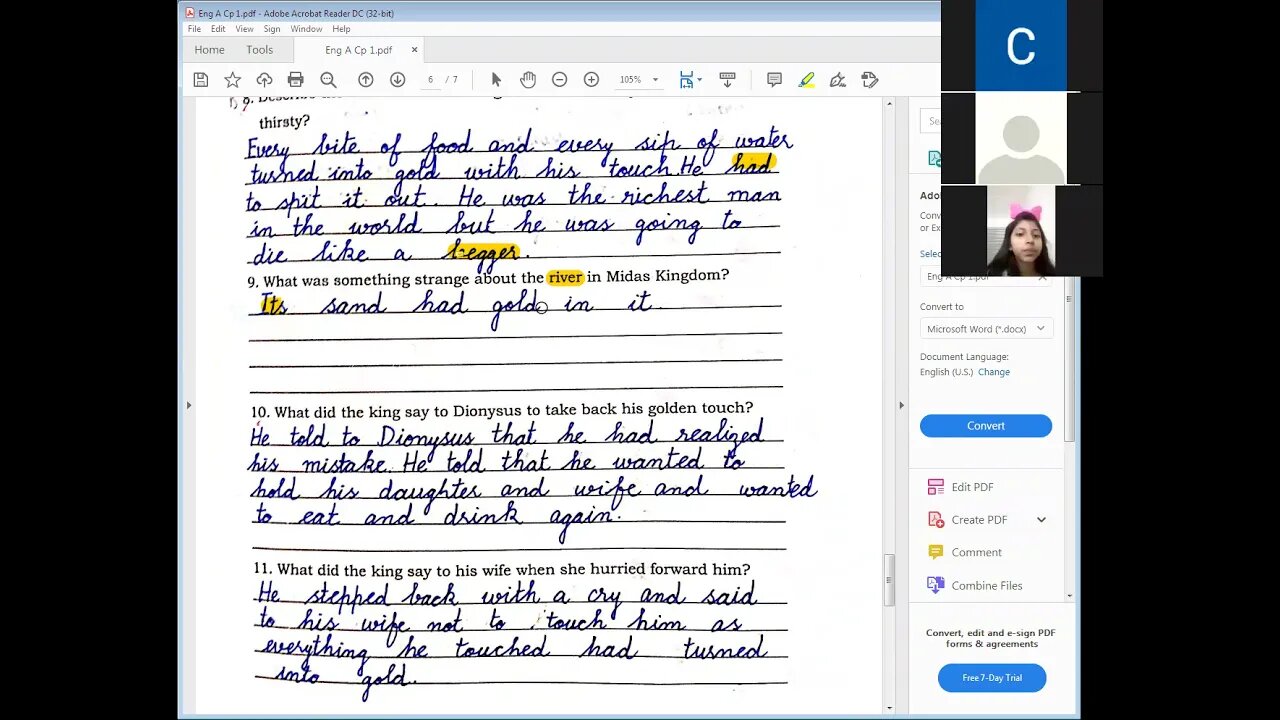 Eng A Cp 1.pdf - Adobe Acrobat Reader DC (32-bit)
File Edit View Sign Window Help
Home Tools Eng A Cp 1.pdf ×
6 / 7 105%
C
thirsty?
Every bite of food and every sip of water
turned into gold with his touch. He had
to spit it out. He was the richest man
in the world but he was going to
die like a begger.
9. What was something strange about the river in Midas Kingdom?
Its sand had gold in it.
10. What did the king say to Dionysus to take back his golden touch?
He told to Dionysus that he had realized
his mistake. He told that he wanted to
hold his daughter and wife and wanted
to eat and drink again.
11. What did the king say to his wife when she hurried forward him?
He stepped back with a cry and said
to his wife not to touch him as
everything he touched had turned
into gold.
Sea
Ado
Conv
or Ex
Selec
Eng A Cp 1.pdf ×
Convert to
Microsoft Word (*.docx)
Document Language:
English (U.S.) Change
Convert
Edit PDF
Create PDF
Comment
Combine Files
Convert, edit and e-sign PDF
forms & agreements
Free 7-Day Trial